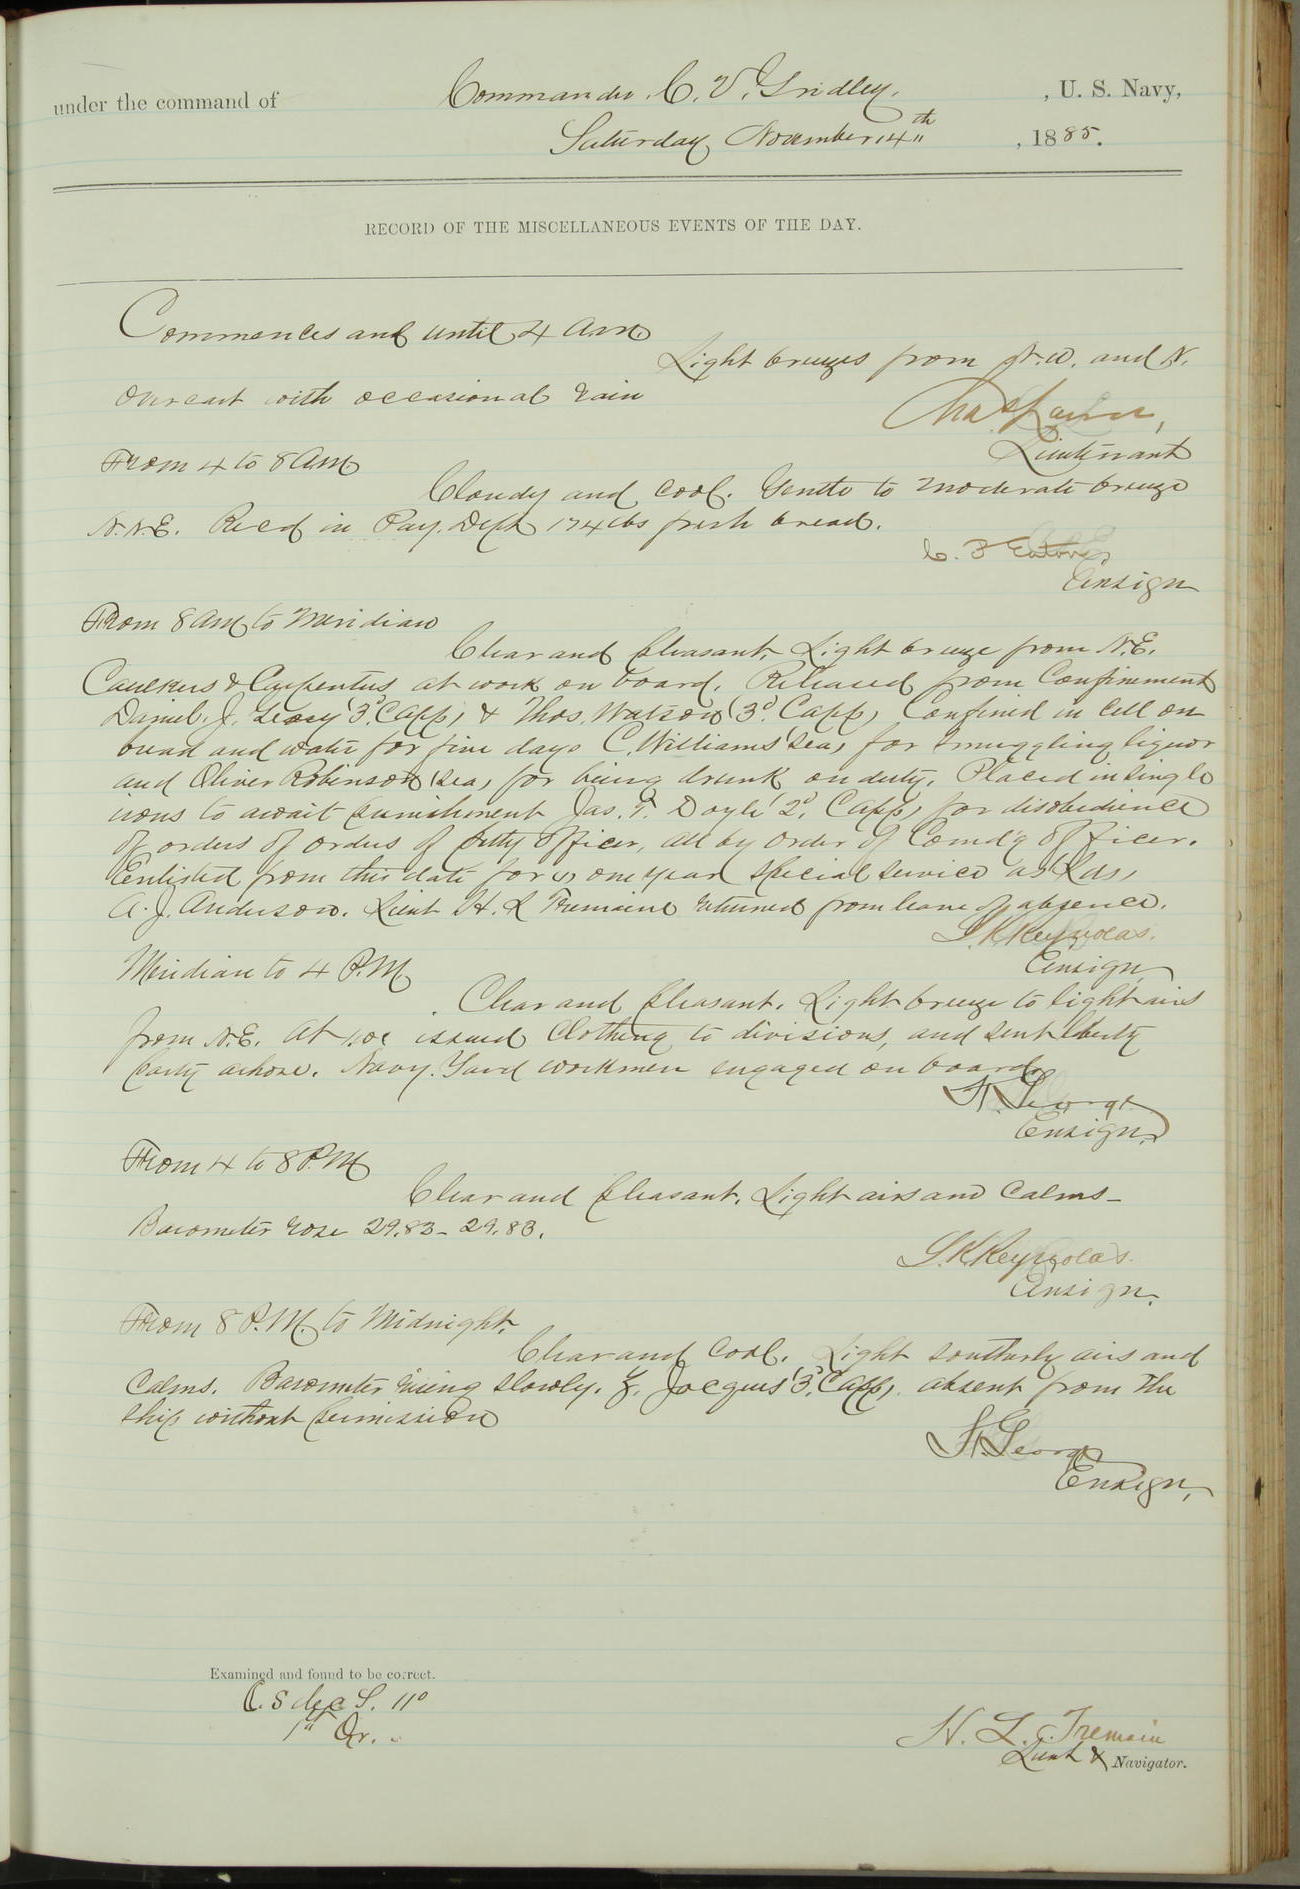 under the command of Commander C. V. Gridley, , U. S. Navy,
Saturday November 14th , 1885.
RECORD OF THE MISCELLANEOUS EVENTS OF THE DAY.
Commences and until 4 A.m.
Light breezes from N.W. and N.
Overcast with occasional rain
Lieutenant
From 4 to 8 AM
Cloudy and cool. Gentle to moderate breeze
N.N.E. Recd in Pay. Dept 174 lbs fresh bread.
C. F Eaton
Ensign
From 8 AM to Meridian
Clear and pleasant. Light breeze from N.E.
Caulkers & Carpenters at work on board. Released from Confinement
Daniel. J. Leary (3d. C app) & Thos. Watson (3d. C app) Confined in cell on
bread and water for five days C. Williams (Sea) for smuggling liquor
and Oliver Robinson (sea) for being drunk on duty. Placed in single
irons to await punishment Jas. T. Doyle (2d. C app) for disobedience
of orders of orders of petty officer, all by order of Comd'g officer.
Enlisted from this date for one year special service as Lds,
A. J. Anderson. Lieut H. L Tremaine returned from leave of absence.
L K Reynolds.
Ensign
Meridian to 4 P.M
Clear and pleasant. Light breeze to light airs
from N.E. At 1.00 issued clothing to divisions, and sent liberty
party ashore. Navy. Yard workmen engaged on board.
H. George
Ensign.
From 4 to 8 P.M
Clear and pleasant. Light airs and calms-
Barometer rose 29.83 - 29.83.
L. K Reynolds.
Ensign.
From 8 P.M. to Midnight.
Clear and cool. Light southerly airs and
calms. Barometer rising slowly. Jacques (3d. C app) absent from the
ship without permission
H. George
Ensign,
Examined and found to be correct.
1st Qr.
H. L. Tremain
Lieut & Navigator.